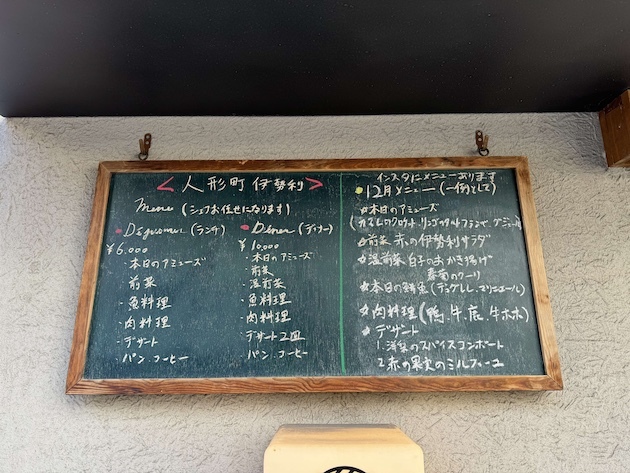 ＜人形町 伊勢利＞
Menu (シェフお任せになります)
Déjeuner (ランチ)
¥6.000
・本日のアミューズ
前菜
・魚料理
・肉料理
・デザート
パン.コーヒー
Dîner (ディナー)
¥10,000
・本日のアミューズ
前菜
温前菜
・魚料理
・肉料理
デザート2皿
パン.コーヒー
インスタにメニューあります
12月メニュー(一例として)
☆本日のアミューズ
☆前菜 赤の伊勢利サラダ
☆温前菜 白子のおかき揚げ
春菊のクーリ
☆本日の鮮魚
☆肉料理(鴨.牛.鹿.牛ホホ)
☆デザート
1.洋梨のスパイスコンポート
2.赤い果実のミルフィーユ